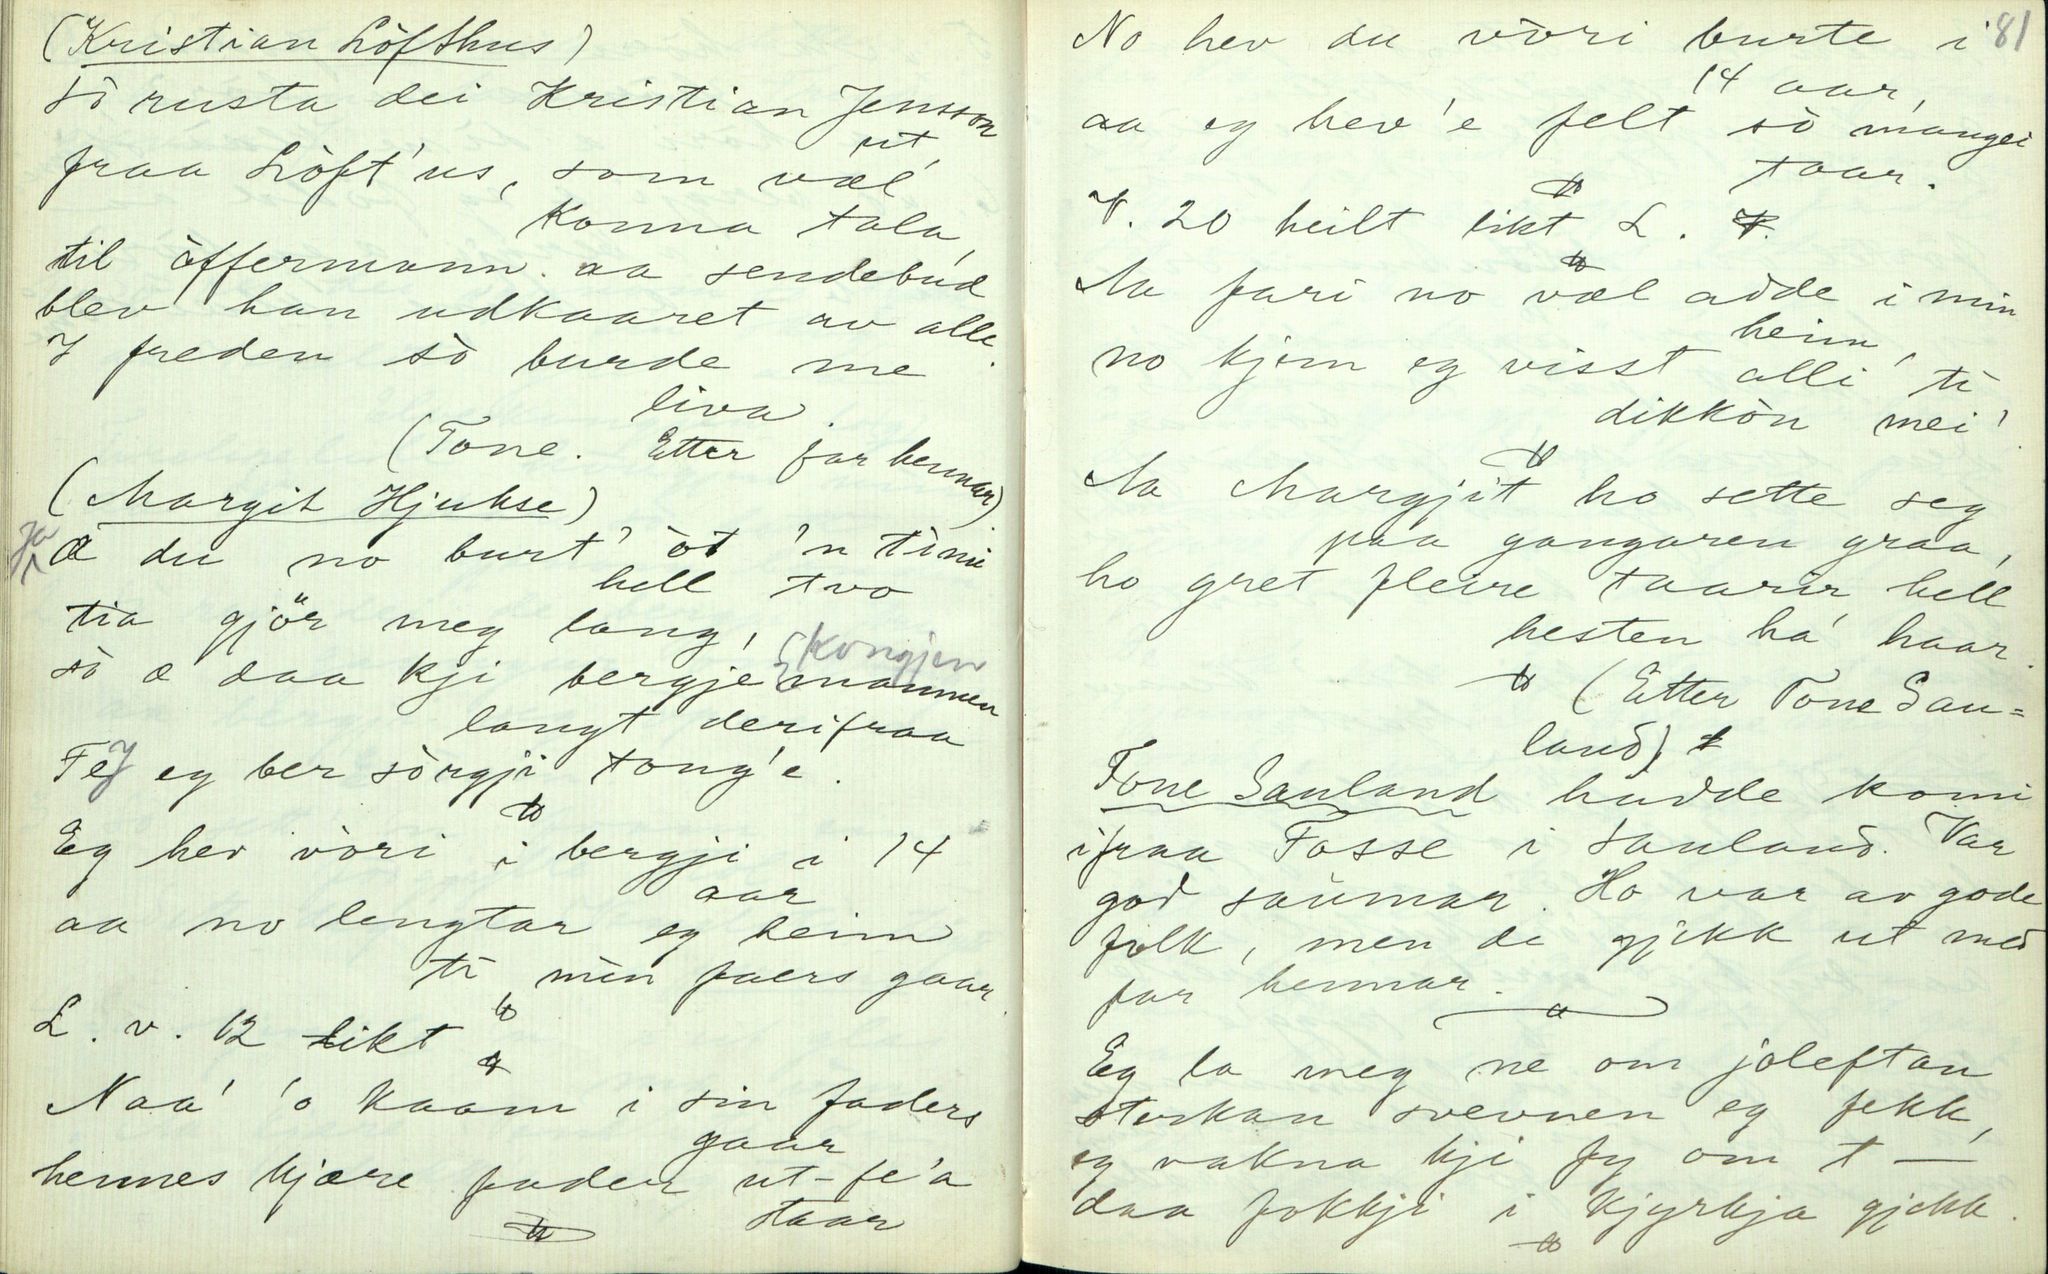 (Kristian Löfthus)
Sò rusta dei Kristian Jensson
ut,
fraa Lòft'us, som væl
konna tala,
til òffermann aa sendebúd
blev han udkaaret av alle.
I freden sò burde me
liva.
(Tone. Etter far hennar)
(Margit Hjukse)
Ja
Æ du no burt' òt 'n tìmi
hell tvo
tia gjör meg lang,
sò æ daa kji bergjemannen
kongjen
langt derifraa
Fe'J eg ber sòrgji tong'e.
Eg hev vòri i bergji i 14
aar
aa no lengtar eg heim
ti mìn faers gaar.
L. v. 12 likt
Naa' 'o kaam i sin faders
gaar
hennes kjære fader ut-fe'a
staar
81
No hev du vòri burte i
14 aar,
aa eg hev'e felt sò mangei
taar.
V. 20 heilt likt L.
Aa fari no væl adde i min
heim,
no kjem eg visst alli ti
dikkòn mei'.
Aa Margjit ho sette seg
paa gangaren graa,
ho gret fleire taarir hell
hesten ha' haar.
(Etter Tone Sau=
land)
Tone Sauland hadde komi
ifraa Fosse i Sauland. Var
god saumar. Ho var av gode
folk, men de gjekk ut med
far hennar.
Eg la meg ne om joleftan
sterkan svevnen eg fekk,
eg vakna kji fy om t —
daa fokkji i kjyrkja gjekk.